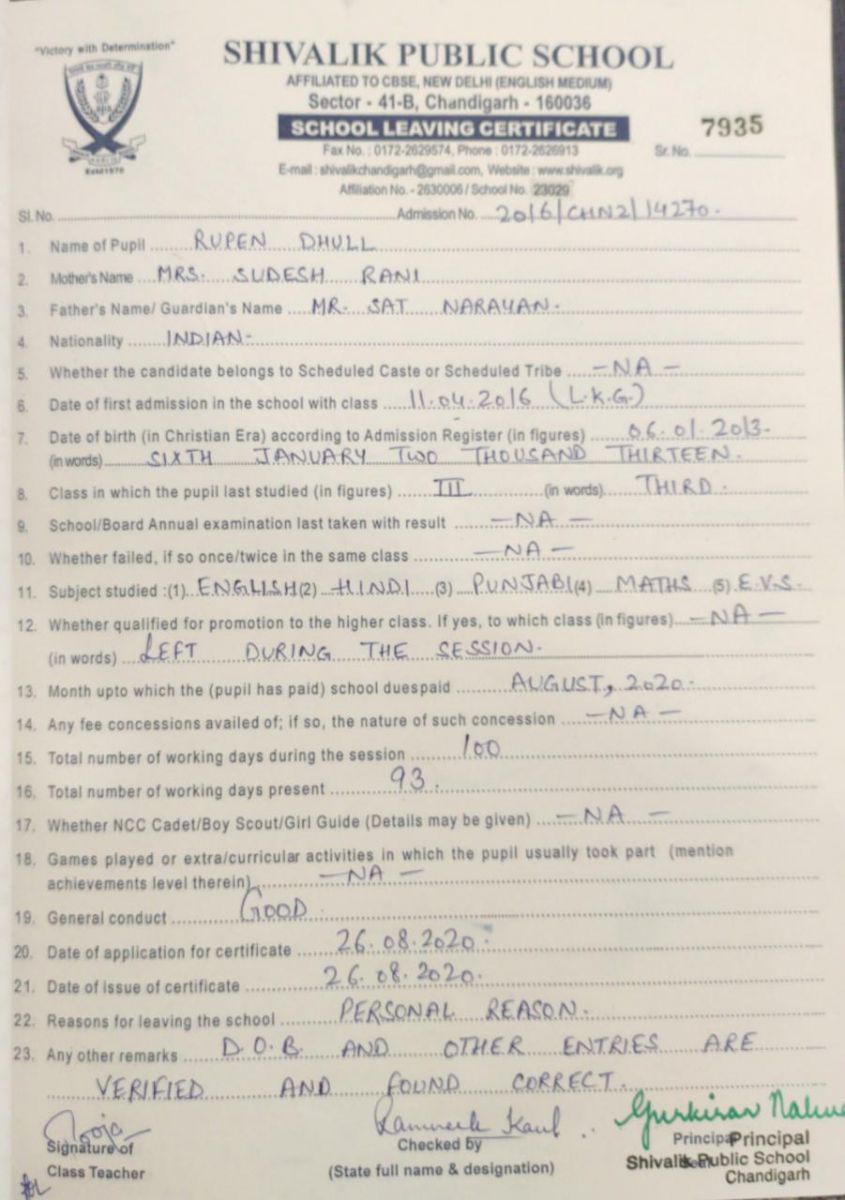 "Victory with Determination"
SHIVALIK PUBLIC SCHOOL
AFFILIATED TO CBSE, NEW DELHI (ENGLISH MEDIUM)
Sector - 41-B, Chandigarh - 160036
SCHOOL LEAVING CERTIFICATE
7935
Fax No. : 0172-2629574, Phone : 0172-2626913
Sr. No.
E-mail : shivalikchandigarh@gmail.com, Website : www.shivalik.org
Affiliation No. - 2630006 / School No. 23029
Estd1970
Sl. No. Admission No. 2016/CHN2/14270.
1. Name of Pupil RUPEN DHULL
2. Mother's Name MRS. SUDESH RANI
3. Father's Name/ Guardian's Name MR. SAT NARAYAN.
4. Nationality INDIAN-
5. Whether the candidate belongs to Scheduled Caste or Scheduled Tribe -NA-
6. Date of first admission in the school with class 11.04.2016 (L.K.G.)
7. Date of birth (in Christian Era) according to Admission Register (in figures) 06.01.2013.
(in words) SIXTH JANUARY TWO THOUSAND THIRTEEN.
8. Class in which the pupil last studied (in figures) III (in words) THIRD.
9. School/Board Annual examination last taken with result -NA-
10. Whether failed, if so once/twice in the same class -NA-
11. Subject studied :(1) ENGLISH (2) HINDI (3) PUNJABI (4) MATHS (5) E.V.S.
12. Whether qualified for promotion to the higher class. If yes, to which class (in figures) -NA-
(in words) LEFT DURING THE SESSION.
13. Month upto which the (pupil has paid) school duespaid AUGUST, 2020.
14. Any fee concessions availed of; if so, the nature of such concession -NA-
15. Total number of working days during the session 100
16. Total number of working days present 93.
17. Whether NCC Cadet/Boy Scout/Girl Guide (Details may be given) -NA-
18. Games played or extra/curricular activities in which the pupil usually took part (mention
achievements level therein) -NA-
19. General conduct GOOD
20. Date of application for certificate 26.08.2020.
21. Date of issue of certificate 26.08.2020.
22. Reasons for leaving the school PERSONAL REASON.
23. Any other remarks D.O.B. AND OTHER ENTRIES ARE
VERIFIED AND FOUND CORRECT.
Pooja
Signature of
Class Teacher
Kaul
Checked by
(State full name & designation)
Gurkiran
Principal
Principal
Shivalik Public School
Chandigarh